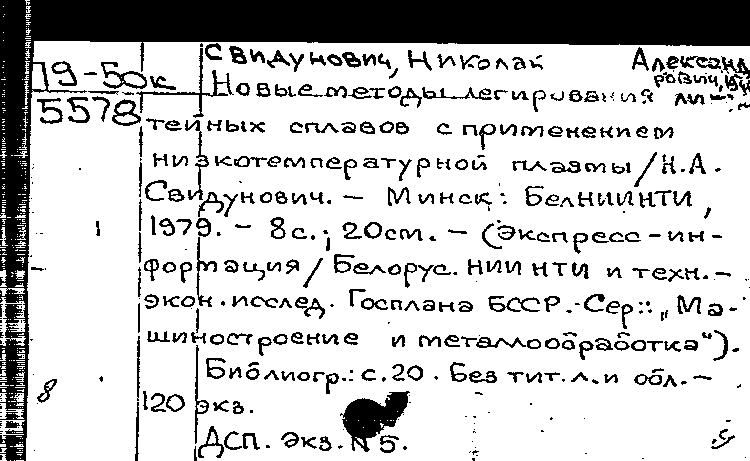 Свидунович, Николай Александ
рович,
19-50к
5578
Новые методы легирования ли-
тейных сплавов с применением
низкотемпературной плазмы / Н.А.
Свидунович. - Минск: БелНИИНТИ,
1979. - 8с.; 20см. - (Экспресс-ин-
формация / Белорус. НИИ НТИ и техн.-
экон. исслед. Госплана БССР.-Сер.: „Ма-
шиностроение и металлообработка").
Библиогр.: с.20. Без тит.л. и обл. -
8
120 экз.
ДСП. Экз. N 5.